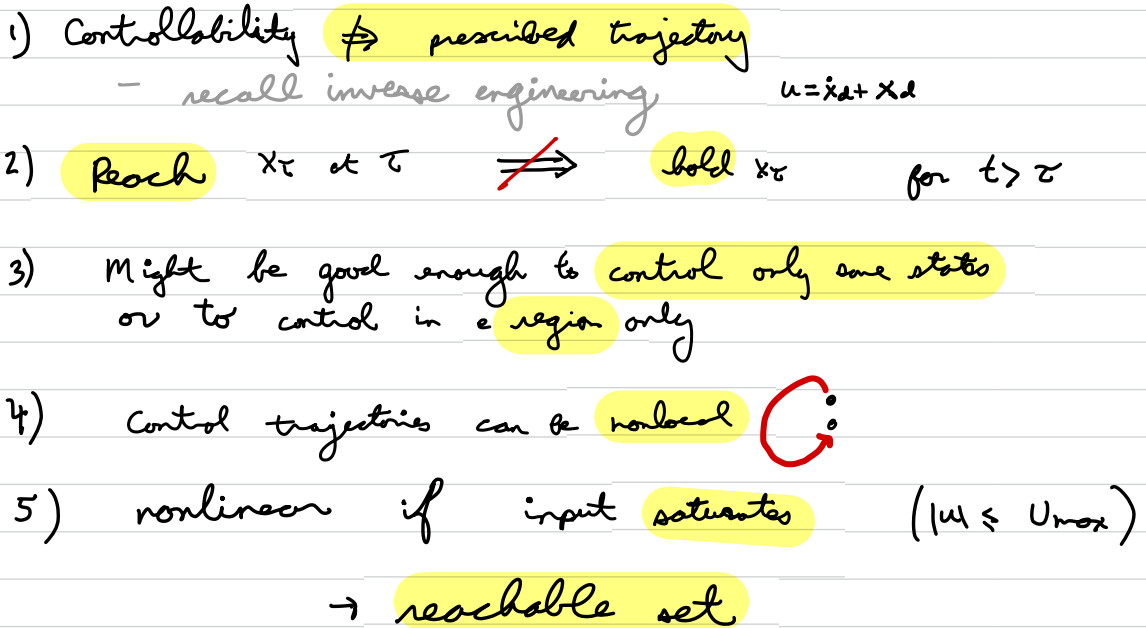 1) Controllability ⇏ prescribed trajectory
- recall inverse engineering u = ẋd + xd
2) Reach xτ at τ ⇏ hold xτ for t > τ
3) Might be good enough to control only some states
or to control in a region only
4) Control trajectories can be nonlocal
5) nonlinear if input saturates (|u| ≤ Umax)
→ reachable set